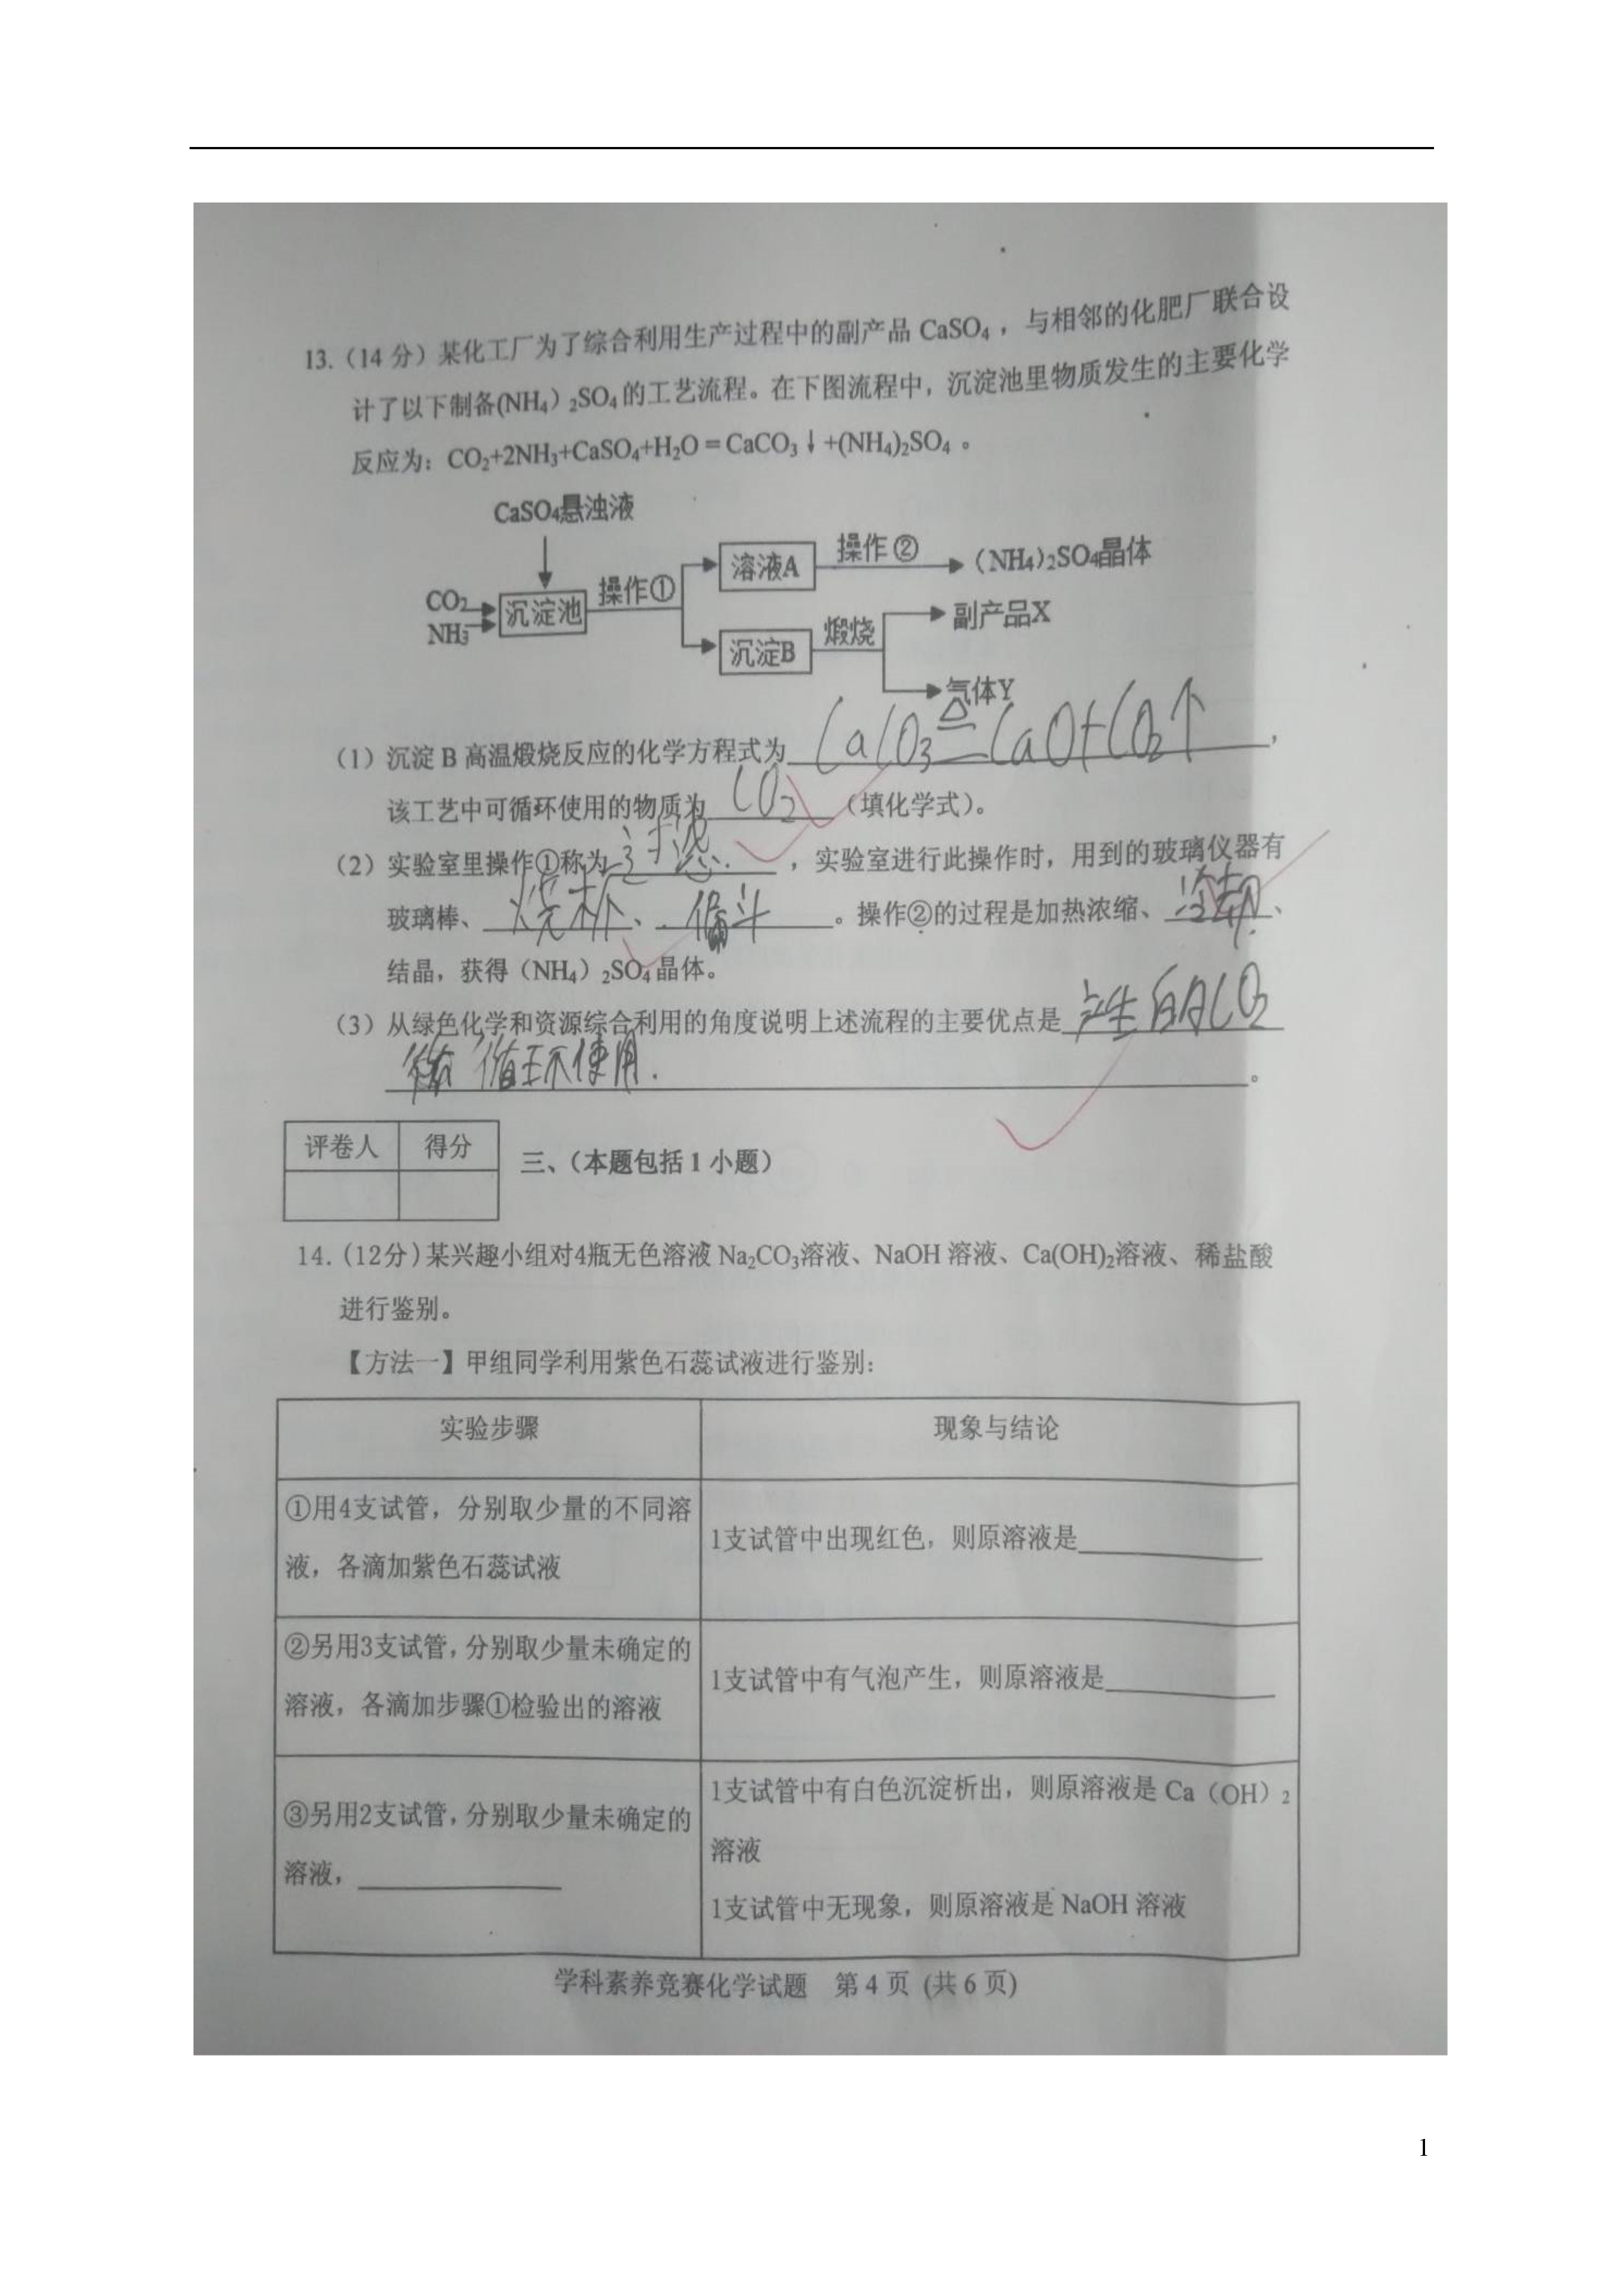 13.（14 分）某化工厂为了综合利用生产过程中的副产品 CaSO₄ ，与相邻的化肥厂联合设
计了以下制备(NH₄）₂SO₄的工艺流程。在下图流程中，沉淀池里物质发生的主要化学
反应为：CO₂+2NH₃+CaSO₄+H₂O＝CaCO₃↓+(NH₄)₂SO₄ 。
CaSO₄悬浊液
CO₂
NH₃
沉淀池
操作①
溶液A
操作②
（NH₄)₂SO₄晶体
沉淀B
煅烧
副产品X
气体Y
（1）沉淀 B 高温煅烧反应的化学方程式为 CaCO₃ ≜ CaO+CO₂↑ ，
该工艺中可循环使用的物质为 CO₂ （填化学式）。
（2）实验室里操作①称为 过滤. ，实验室进行此操作时，用到的玻璃仪器有
玻璃棒、 烧杯 、 漏斗 。操作②的过程是加热浓缩、 冷却 、
结晶，获得（NH₄）₂SO₄晶体。
（3）从绿色化学和资源综合利用的角度说明上述流程的主要优点是 产生的CO₂
循环使用. 。
评卷人 得分
三、（本题包括 1 小题）
14.（12分）某兴趣小组对4瓶无色溶液 Na₂CO₃溶液、NaOH 溶液、Ca(OH)₂溶液、稀盐酸
进行鉴别。
【方法一】甲组同学利用紫色石蕊试液进行鉴别：
实验步骤 现象与结论
①用4支试管，分别取少量的不同溶
液，各滴加紫色石蕊试液
1支试管中出现红色，则原溶液是____
②另用3支试管，分别取少量未确定的
溶液，各滴加步骤①检验出的溶液
1支试管中有气泡产生，则原溶液是____
③另用2支试管，分别取少量未确定的
溶液，____
1支试管中有白色沉淀析出，则原溶液是 Ca（OH）₂
溶液
1支试管中无现象，则原溶液是 NaOH 溶液
学科素养竞赛化学试题 第 4 页 (共 6 页)
1